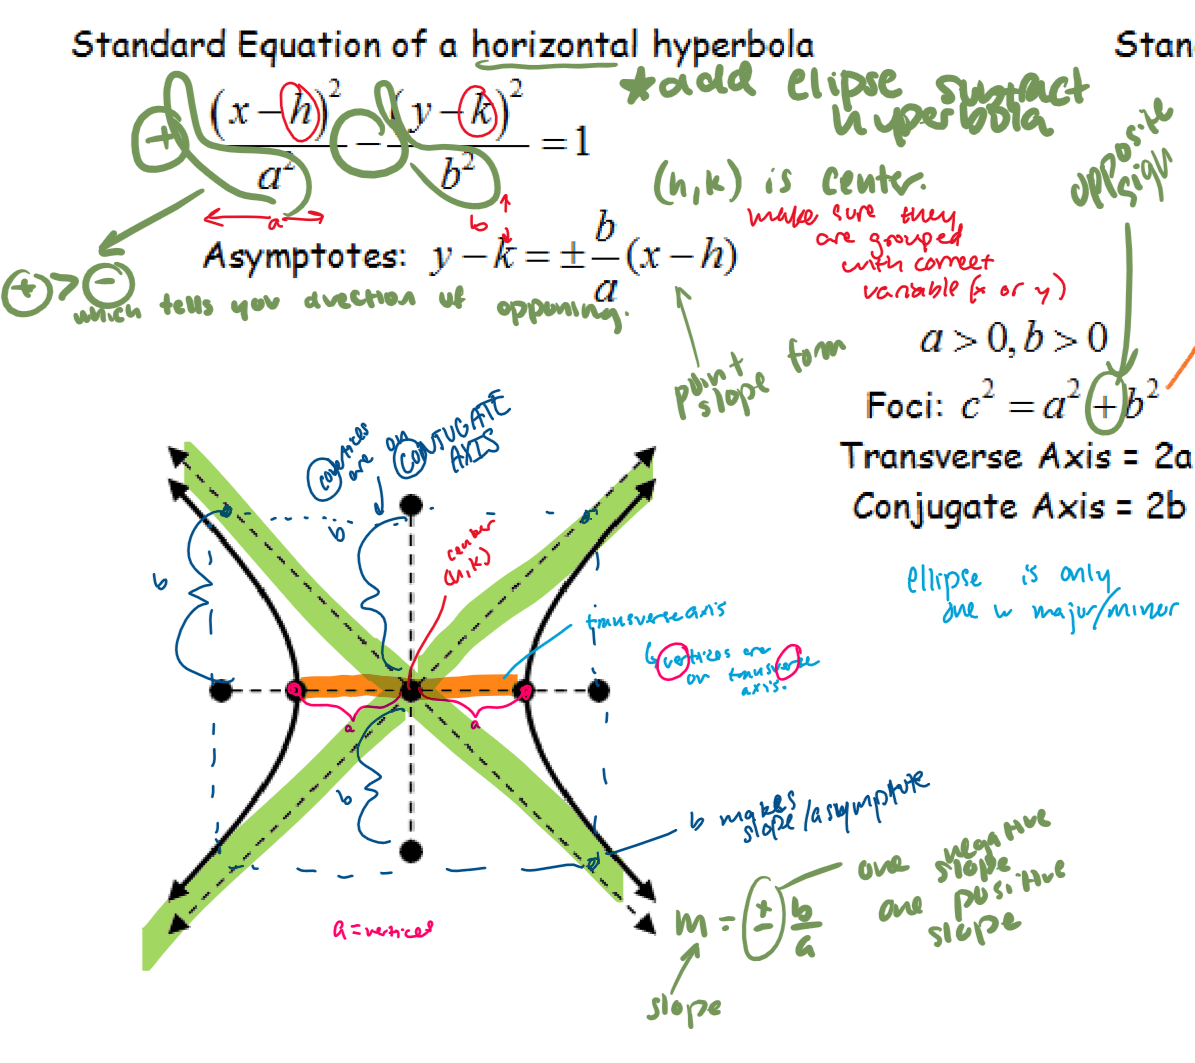 Standard Equation of a horizontal hyperbola
Stan
(x - h)² / a² - (y - k)² / b² = 1
+
a
b
★add elipse subtract
hyperbola
(h,k) is center.
make sure they
are grouped
with correct
variable (x or y)
opposite
sign
Asymptotes: y - k = ± b/a (x - h)
+ > -
which tells you direction of oppening.
point
slope form
a > 0, b > 0
Foci: c² = a² + b²
Transverse Axis = 2a
Conjugate Axis = 2b
covertices
are on
CONJUGATE
AXIS
b
b
center
(h,k)
transverse axis
↳ vertices are
on transverse
axis.
ellipse is only
one w major/minor
a
a
b
b makes
slope/asymptote
a = vertices
m = ± b/a
one negative
slope
one positive
slope
slope